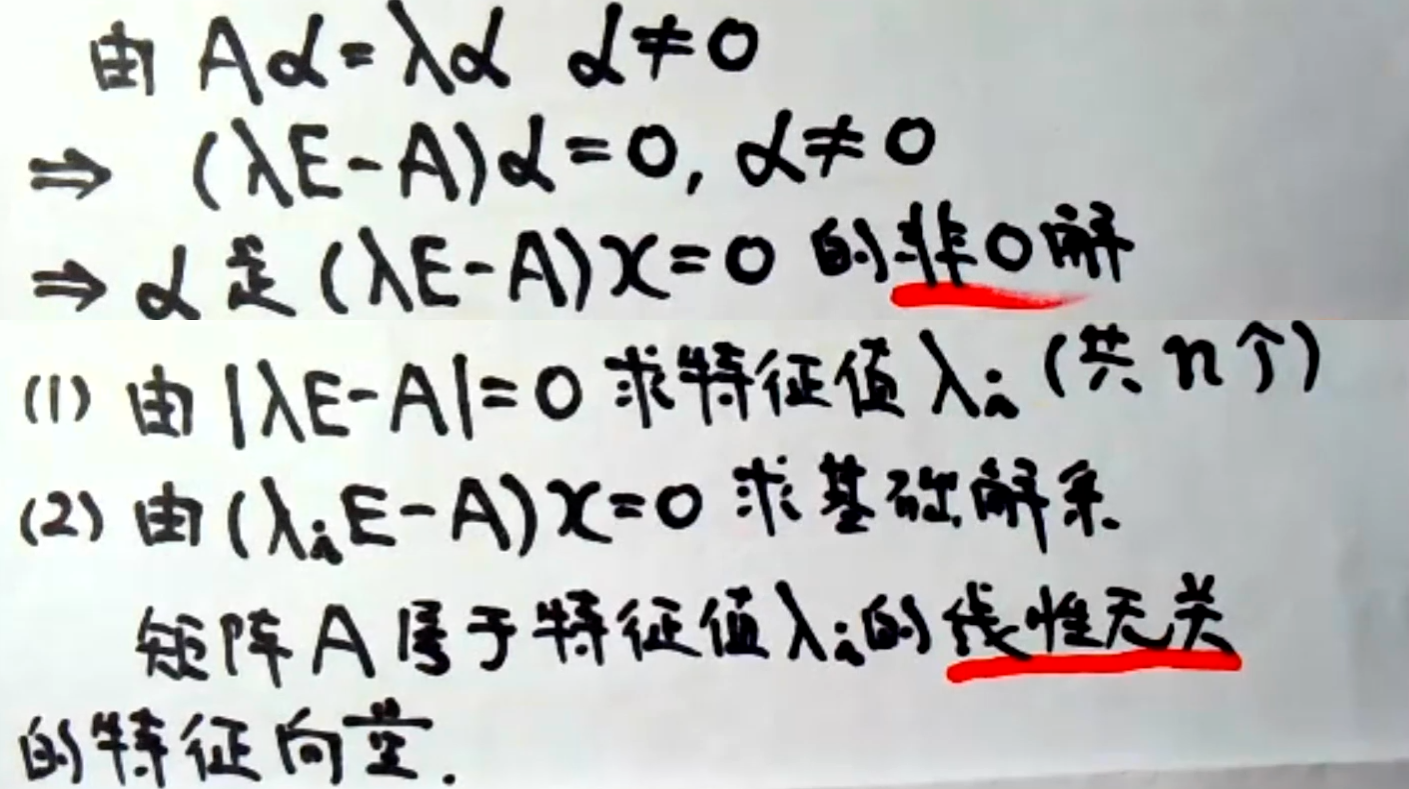 由 Aα=λα α≠0
⇒ (λE-A)α=0, α≠0
⇒ α是(λE-A)x=0 的非0解
(1) 由|λE-A|=0 求特征值λi (共n个)
(2) 由(λiE-A)x=0 求基础解系.
矩阵A属于特征值λi的线性无关
的特征向量.